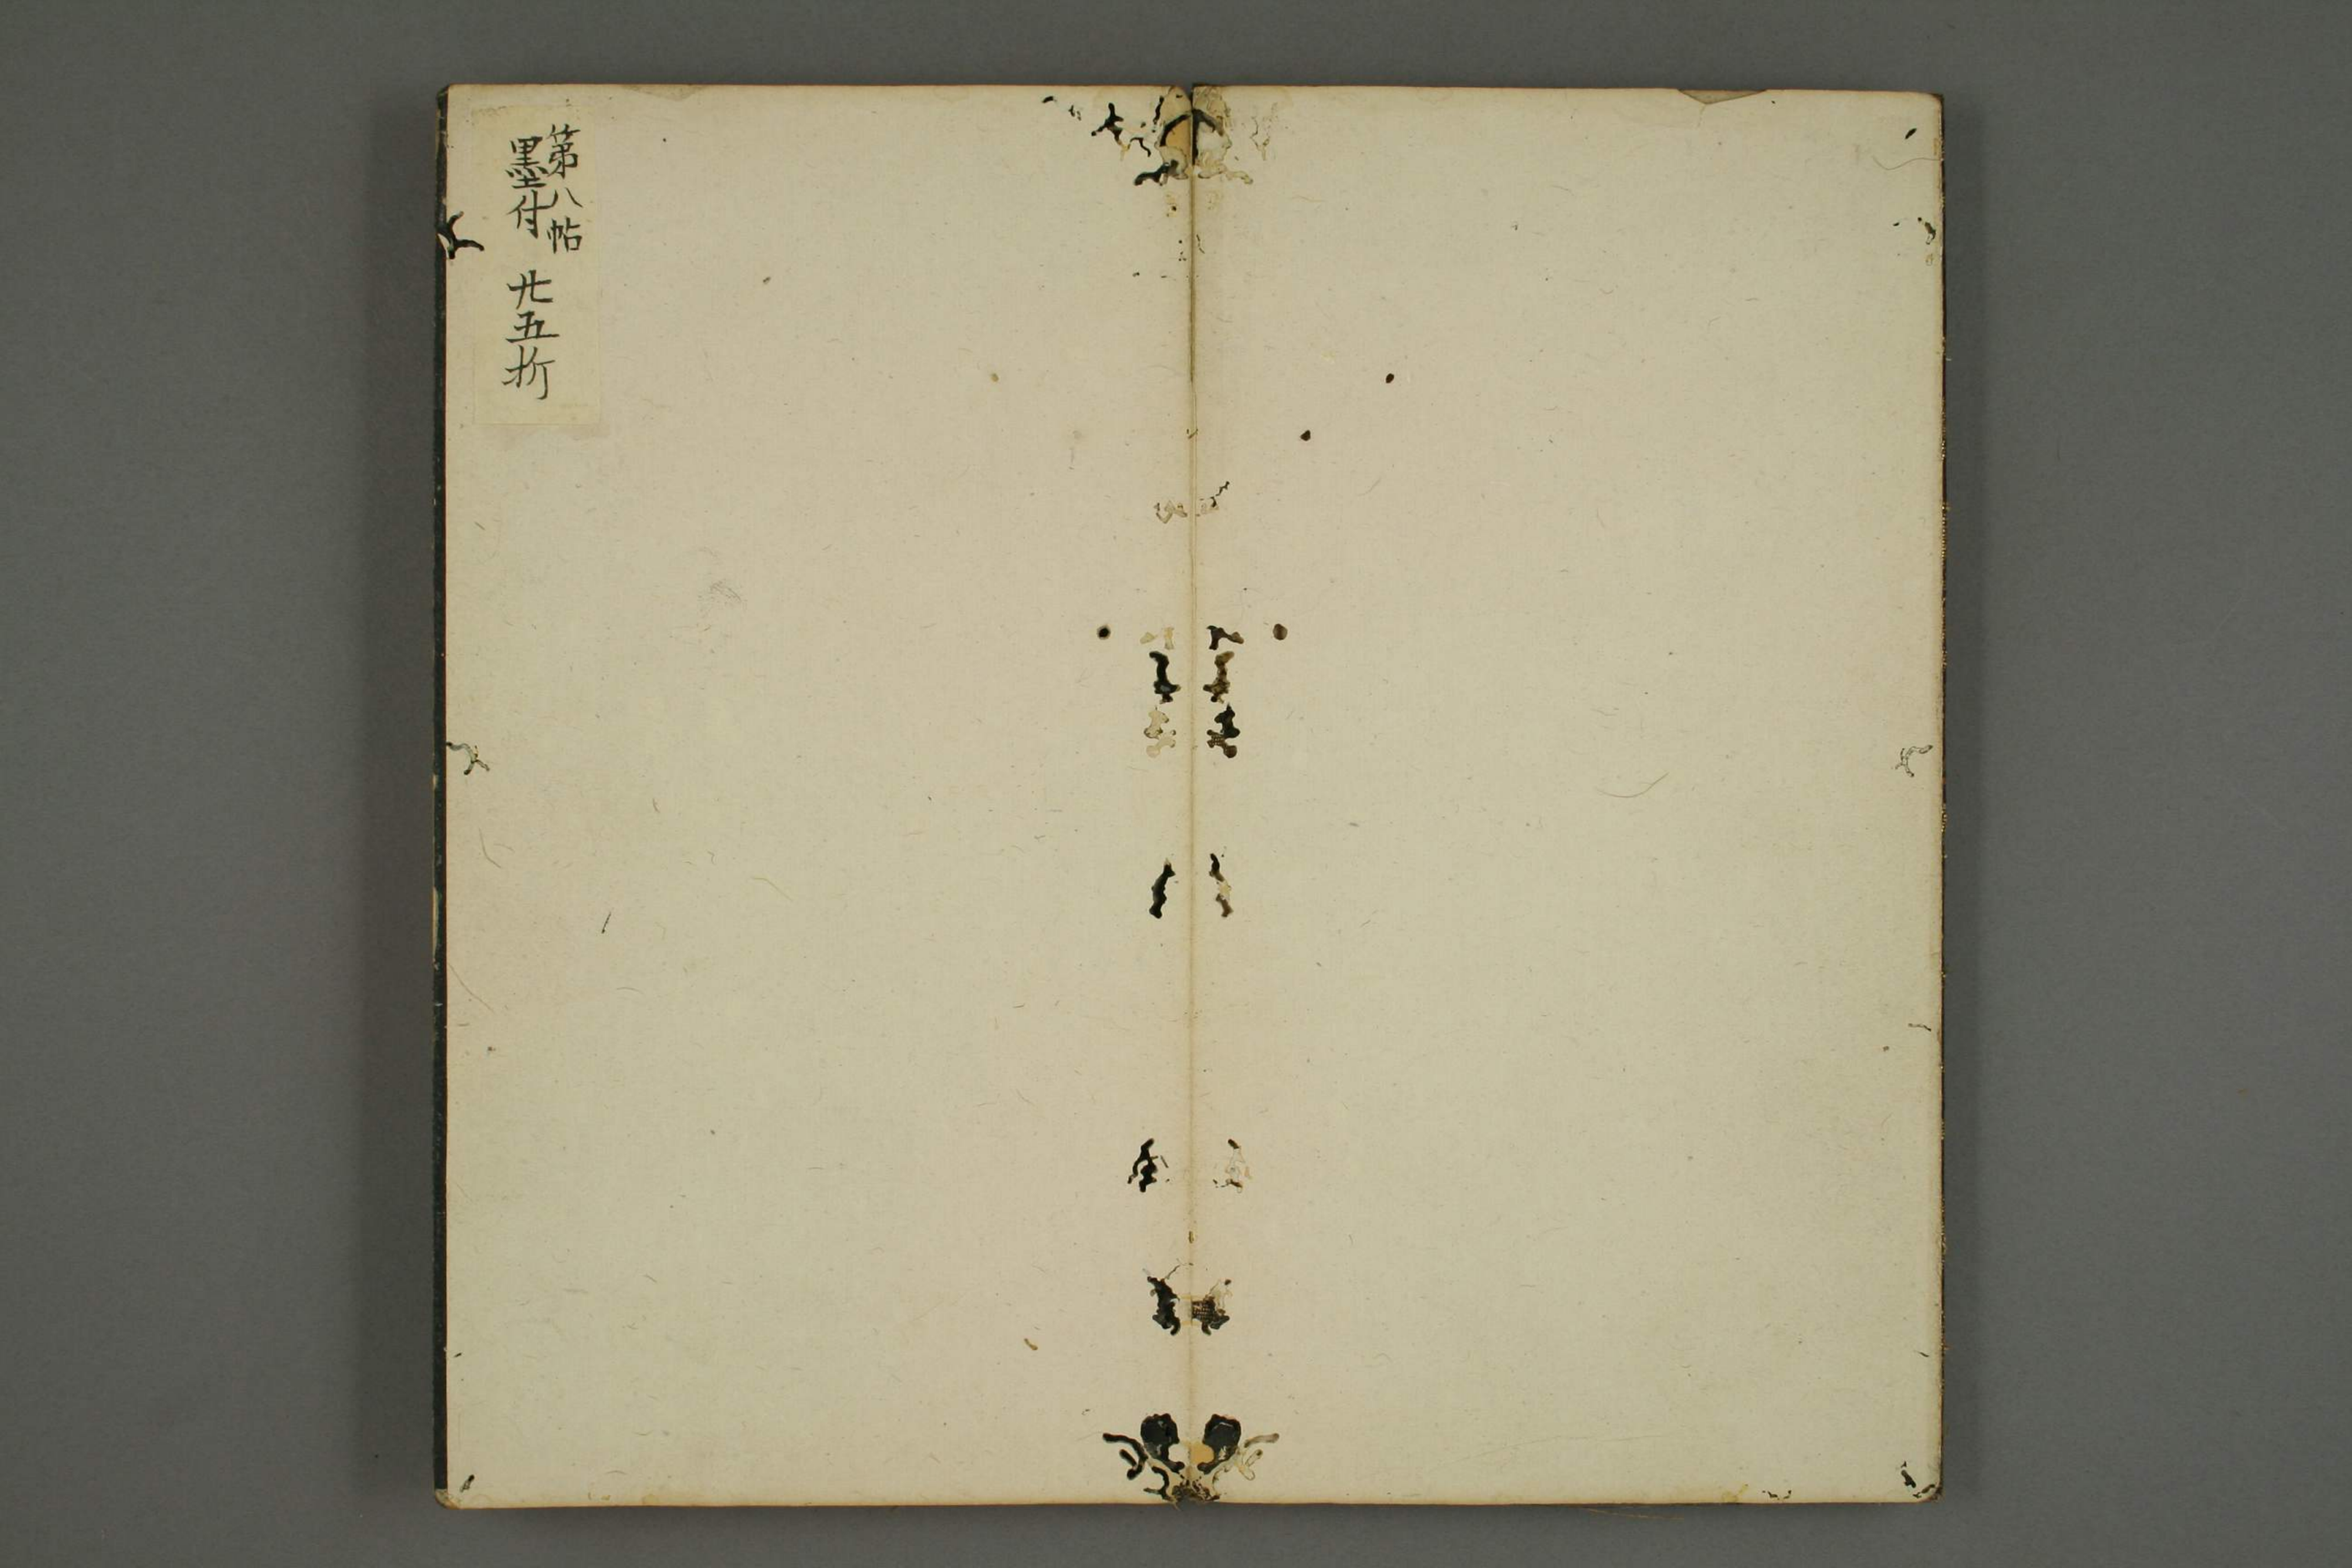 第八帖
墨付 廿五折